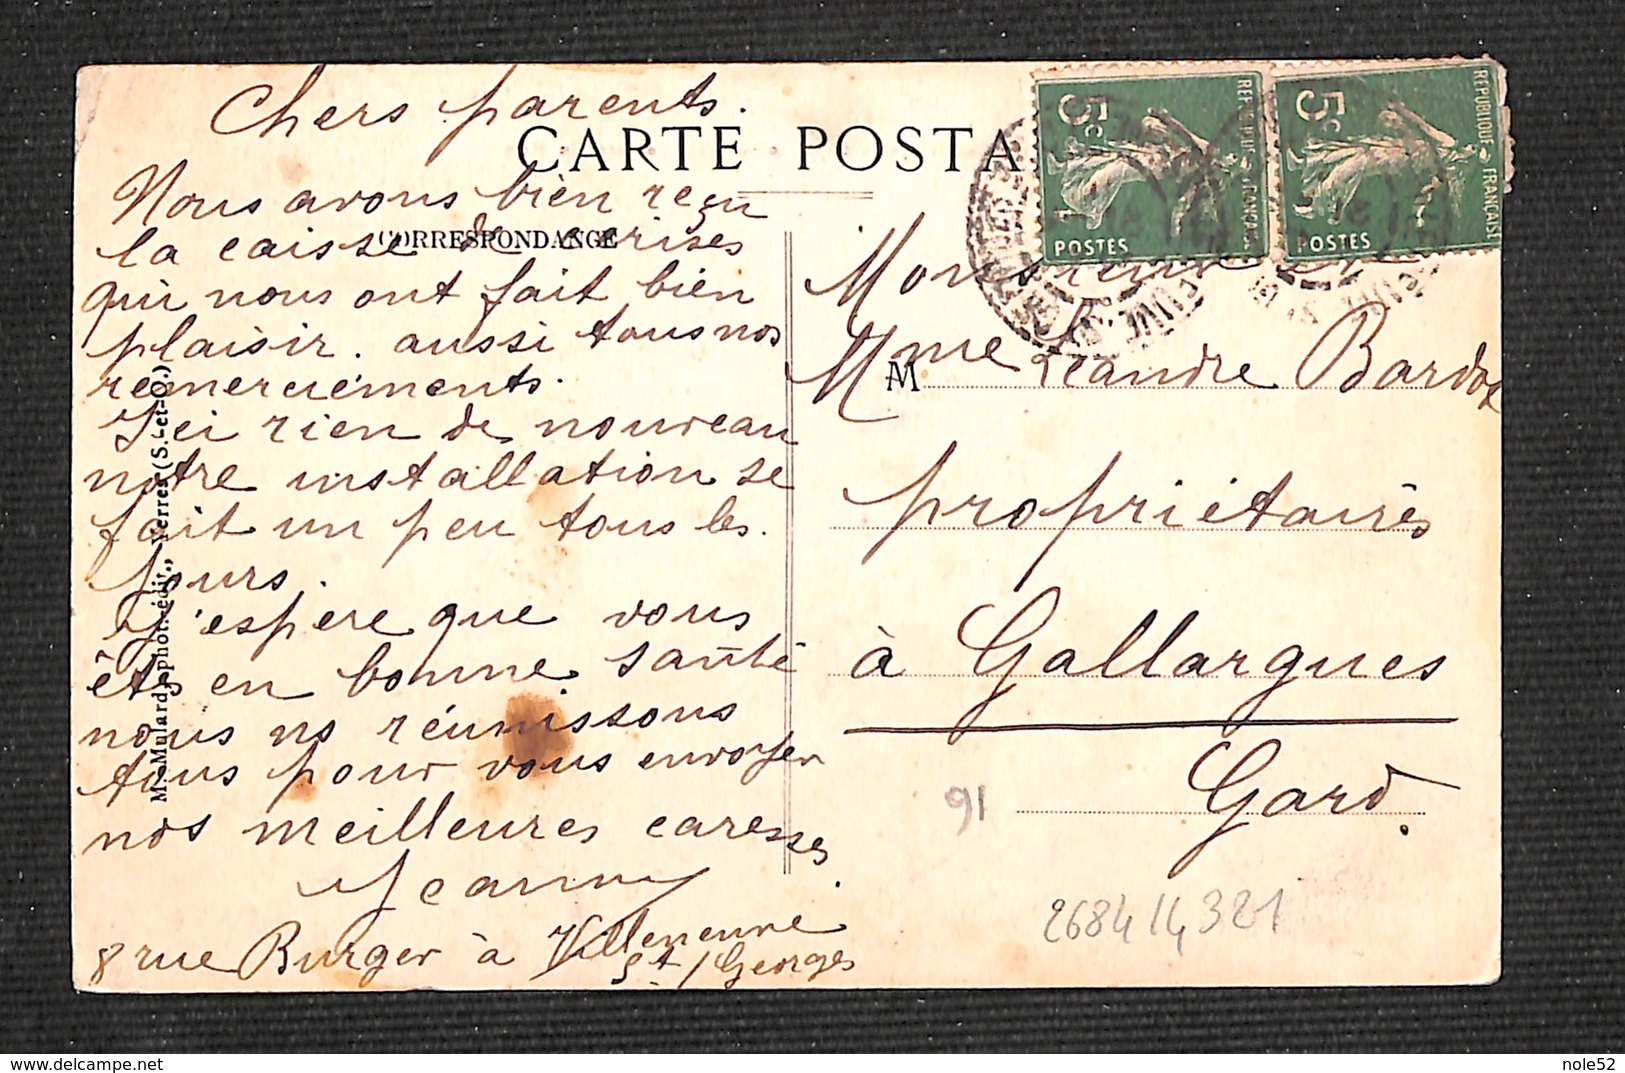 Chers parents.
CARTE POSTA
Nous avons bien reçu
la caisse de cerises
CORRESPONDANCE
qui nous ont fait bien
plaisir. aussi tous nos
remerciements.
Ici rien de nouveau
notre installation se
fait un peu tous les.
jours.
J'espere que vous
êts en bonne santé
nous ns réunissons
tous pour vous envoyer
nos meilleures caresses.
Jeanny
8 rue Burger à Villeneuve
St/Georges
M. Mulard, phot.-édit., Yerres (S.-et-O.)
5c
REPUBLIQUE FRANÇAISE
POSTES
5c
REPUBLIQUE FRANÇAISE
POSTES
Monsieur et
M
Mme Léandre Bardox
propriétaires
à Gallargues
Gard.
91
268414321
delcampe.net
nole52